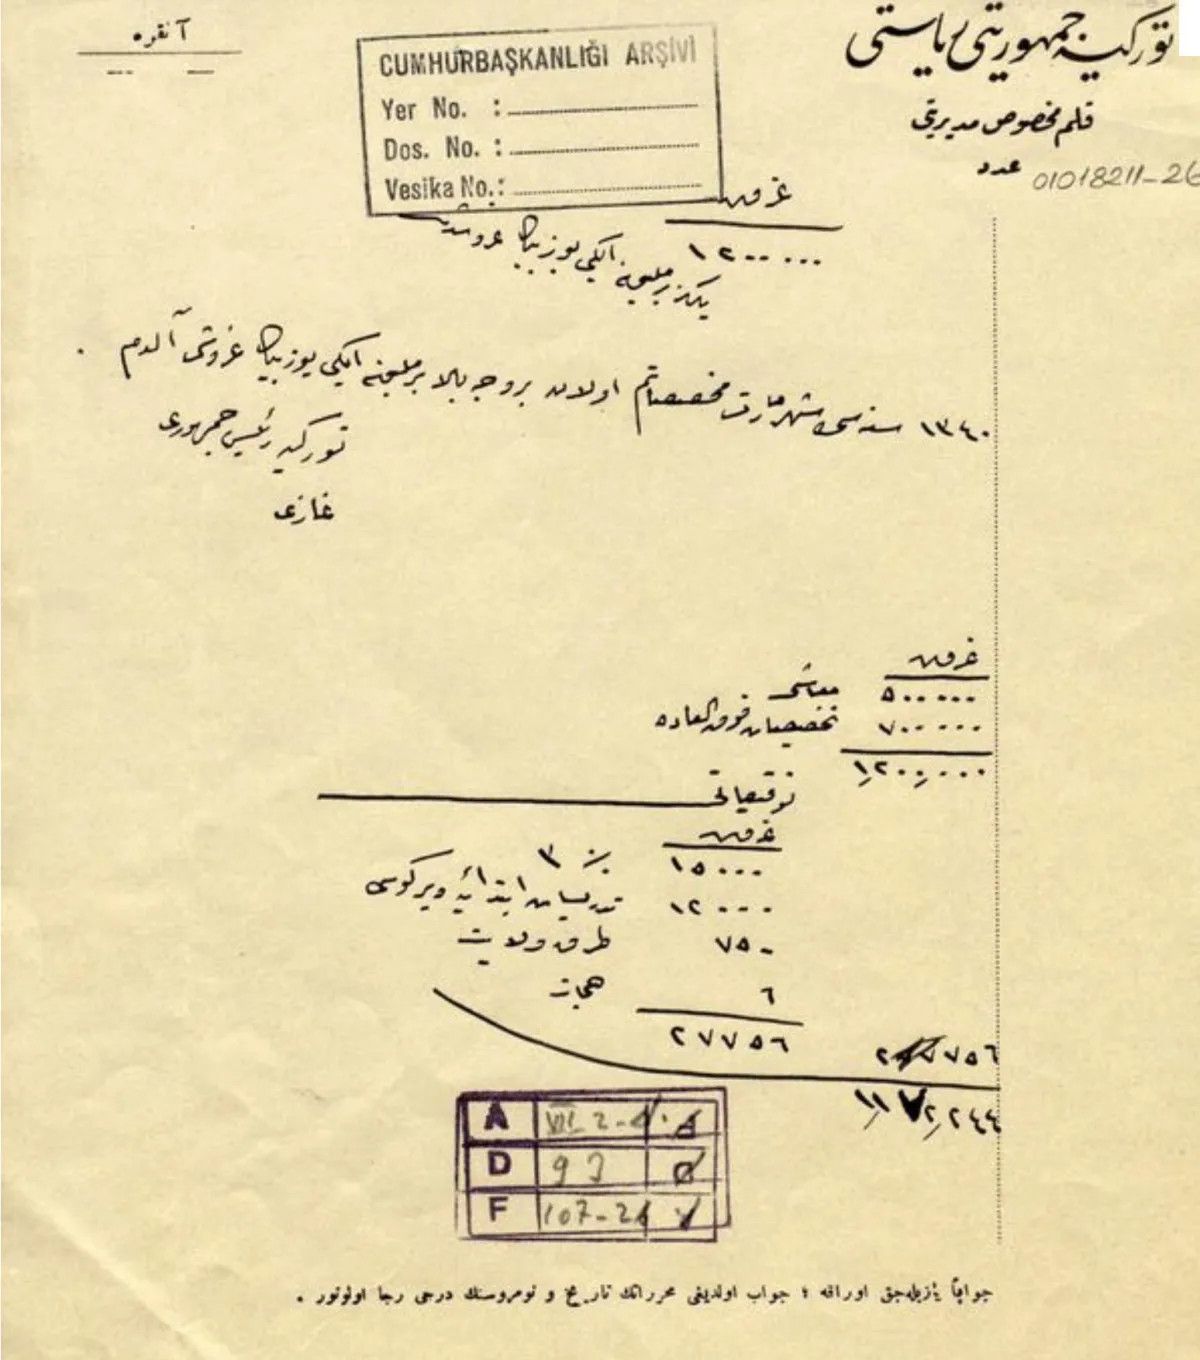 توركیه جمهوریتی ریاستی
قلم مخصوص مدیریتی
عدد
01018211-26
آنقره
CUMHURBAŞKANLIĞI ARŞİVİ
Yer No. :
Dos. No. :
Vesika No.:
غروش
١٢٠٠٠٠٠
یالكز بر ملیون ایكی یوز بیك غروشدر
١٣٤٠ سنه سی شهر مارت مخصصاتم اولان بروجه بالا بر ملیون ایكی یوز بیك غروشی آلدم .
توركیه رئیس جمهوری
غازی
غروش
٥٠٠٠٠٠ معاشی
٧٠٠٠٠٠ تخصیصات فوق العاده
١,٢٠٠,٠٠٠
توقیفاتی
غروش
١٥٠٠٠ ٪ ٣
١٢٠٠٠ تدریسات ابتدائیه ویركوسی
٧٥٠ طرق ولایت
٦ حجاز
٢٧٧٥٦
٢٧٧٥٦
١,١٧٢,٢٤٤
A VIII 2-
D 93
F 107-26
جواباً یازیله جق اوراقه ؛ جواب اولدیغی محرراتك تاریخ و نومروسنك درجی رجا اولونور .